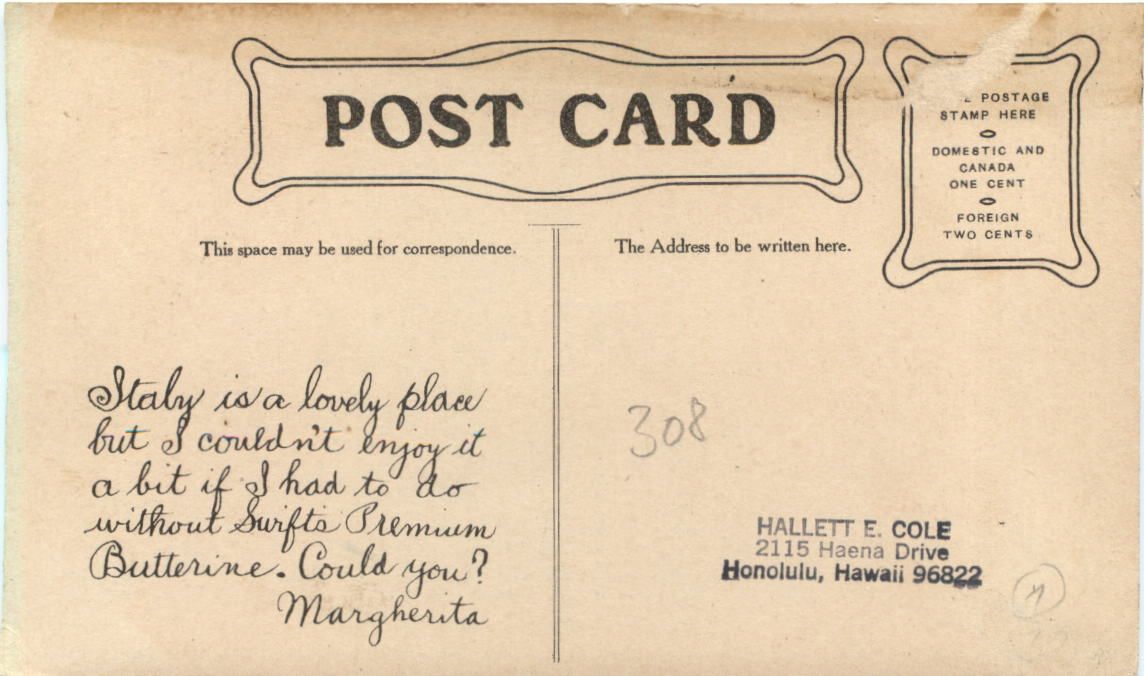 POST CARD
POSTAGE
STAMP HERE
DOMESTIC AND
CANADA
ONE CENT
FOREIGN
TWO CENTS
This space may be used for correspondence.
The Address to be written here.
Italy is a lovely place
but I couldn't enjoy it
a bit if I had to do
without Swift's Premium
Butterine. Could you?
Margherita
308
HALLETT E. COLE
2115 Haena Drive
Honolulu, Hawaii 96822